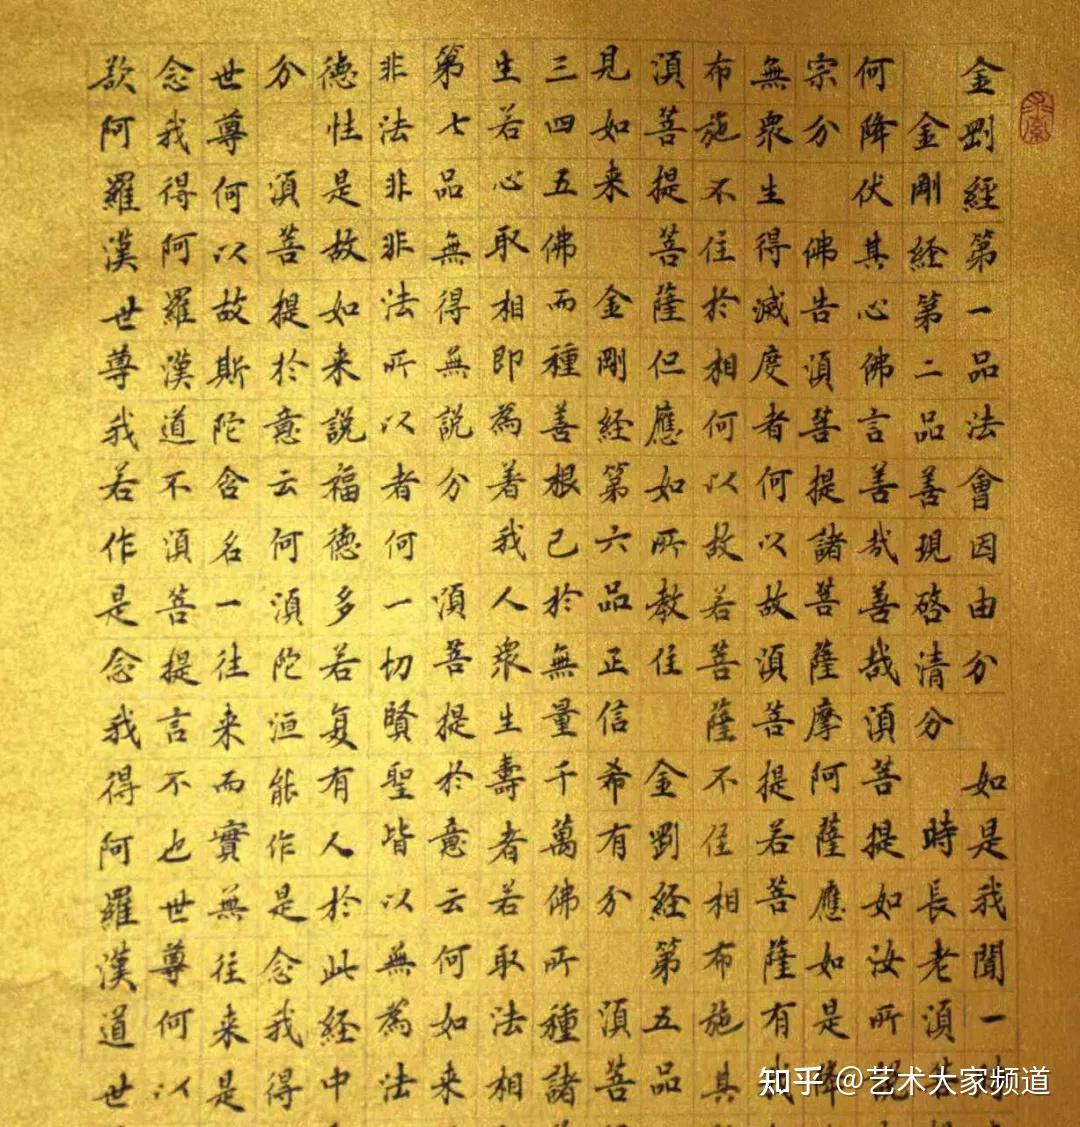 金剛經第一品法會因由分 如是我聞一
金剛経第二品善現啓清分 時長老須菩
何降伏其心佛言善哉善哉須菩提如汝所說
宗分 佛告須菩提諸菩薩摩阿薩應如是降
無衆生得滅度者何以故須菩提若菩薩有我
布施不住於相何以故若菩薩不住相布施其
須菩提菩薩但應如所教住 金剛経第五品
見如来 金剛経第六品正信希有分 須菩
三四五佛而種善根已於無量千萬佛所種諸
生若心取相即為著我人衆生壽者若取法相
第七品無得無說分 須菩提於意云何如来
非法非非法所以者何一切賢聖皆以無為法
德性是故如来說福德多若复有人於此経中
分 須菩提於意云何須陀洹能作是念我得
世尊何以故斯陀含名一往来而實無往来是
念我得阿羅漢道不須菩提言不也世尊何以
欲阿羅漢世尊我若作是念我得阿羅漢道世
知乎 @艺术大家频道